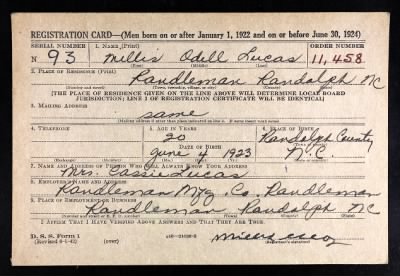 REGISTRATION CARD—(Men born on or after January 1, 1922 and on or before June 30, 1924)
SERIAL NUMBER 1. NAME (Print) ORDER NUMBER
N 93 Millis Odell Lucas 11,458
2. PLACE OF RESIDENCE (Print)
Randleman Randolph NC
(Town, township, village, or city) (County) (State)
[THE PLACE OF RESIDENCE GIVEN ON THE LINE ABOVE WILL DETERMINE LOCAL BOARD
JURISDICTION; LINE 2 OF REGISTRATION CERTIFICATE WILL BE IDENTICAL]
3. MAILING ADDRESS
same
[Mailing address if other than place indicated on line 2. If same insert word same]
4. TELEPHONE 5. AGE IN YEARS 6. PLACE OF BIRTH
20 Randolph County
DATE OF BIRTH
June 4 1923 N.C
(Exchange) (Number) (Mo.) (Day) (Yr.) (State or country)
7. NAME AND ADDRESS OF PERSON WHO WILL ALWAYS KNOW YOUR ADDRESS
Mrs. Cassie Lucas
8. EMPLOYER'S NAME AND ADDRESS
Randleman Mfg. Co. Randleman
9. PLACE OF EMPLOYMENT OR BUSINESS
Randleman Randolph NC
(Number and street or R. F. D. number) (Town) (County) (State)
I AFFIRM THAT I HAVE VERIFIED ABOVE ANSWERS AND THAT THEY ARE TRUE.
D. S. S. Form 1
(Revised 6-1-42) (over)
(Registrant's signature)